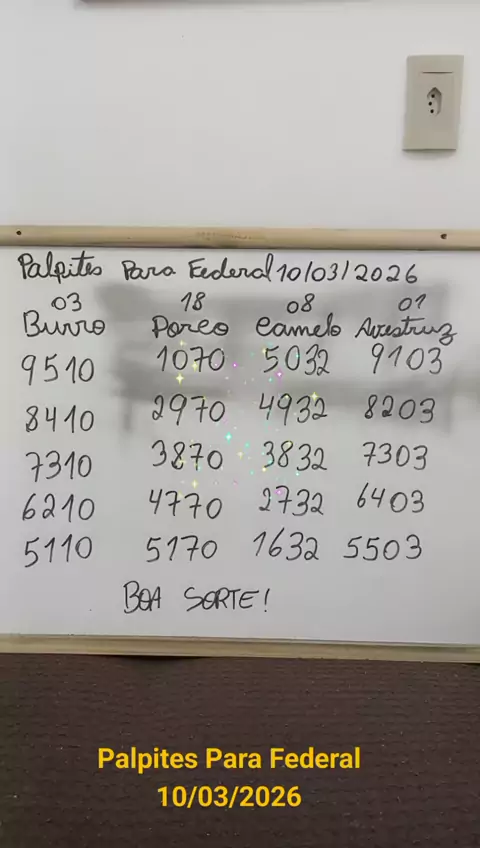 Palpites Para Federal 10/03/2026
03 18 08 01
Burro Porco Camelo Avestruz
9510 1070 5032 9103
8410 2970 4932 8203
7310 3870 3832 7303
6210 4770 2732 6403
5110 5170 1632 5503
BOA SORTE!
Palpites Para Federal
10/03/2026